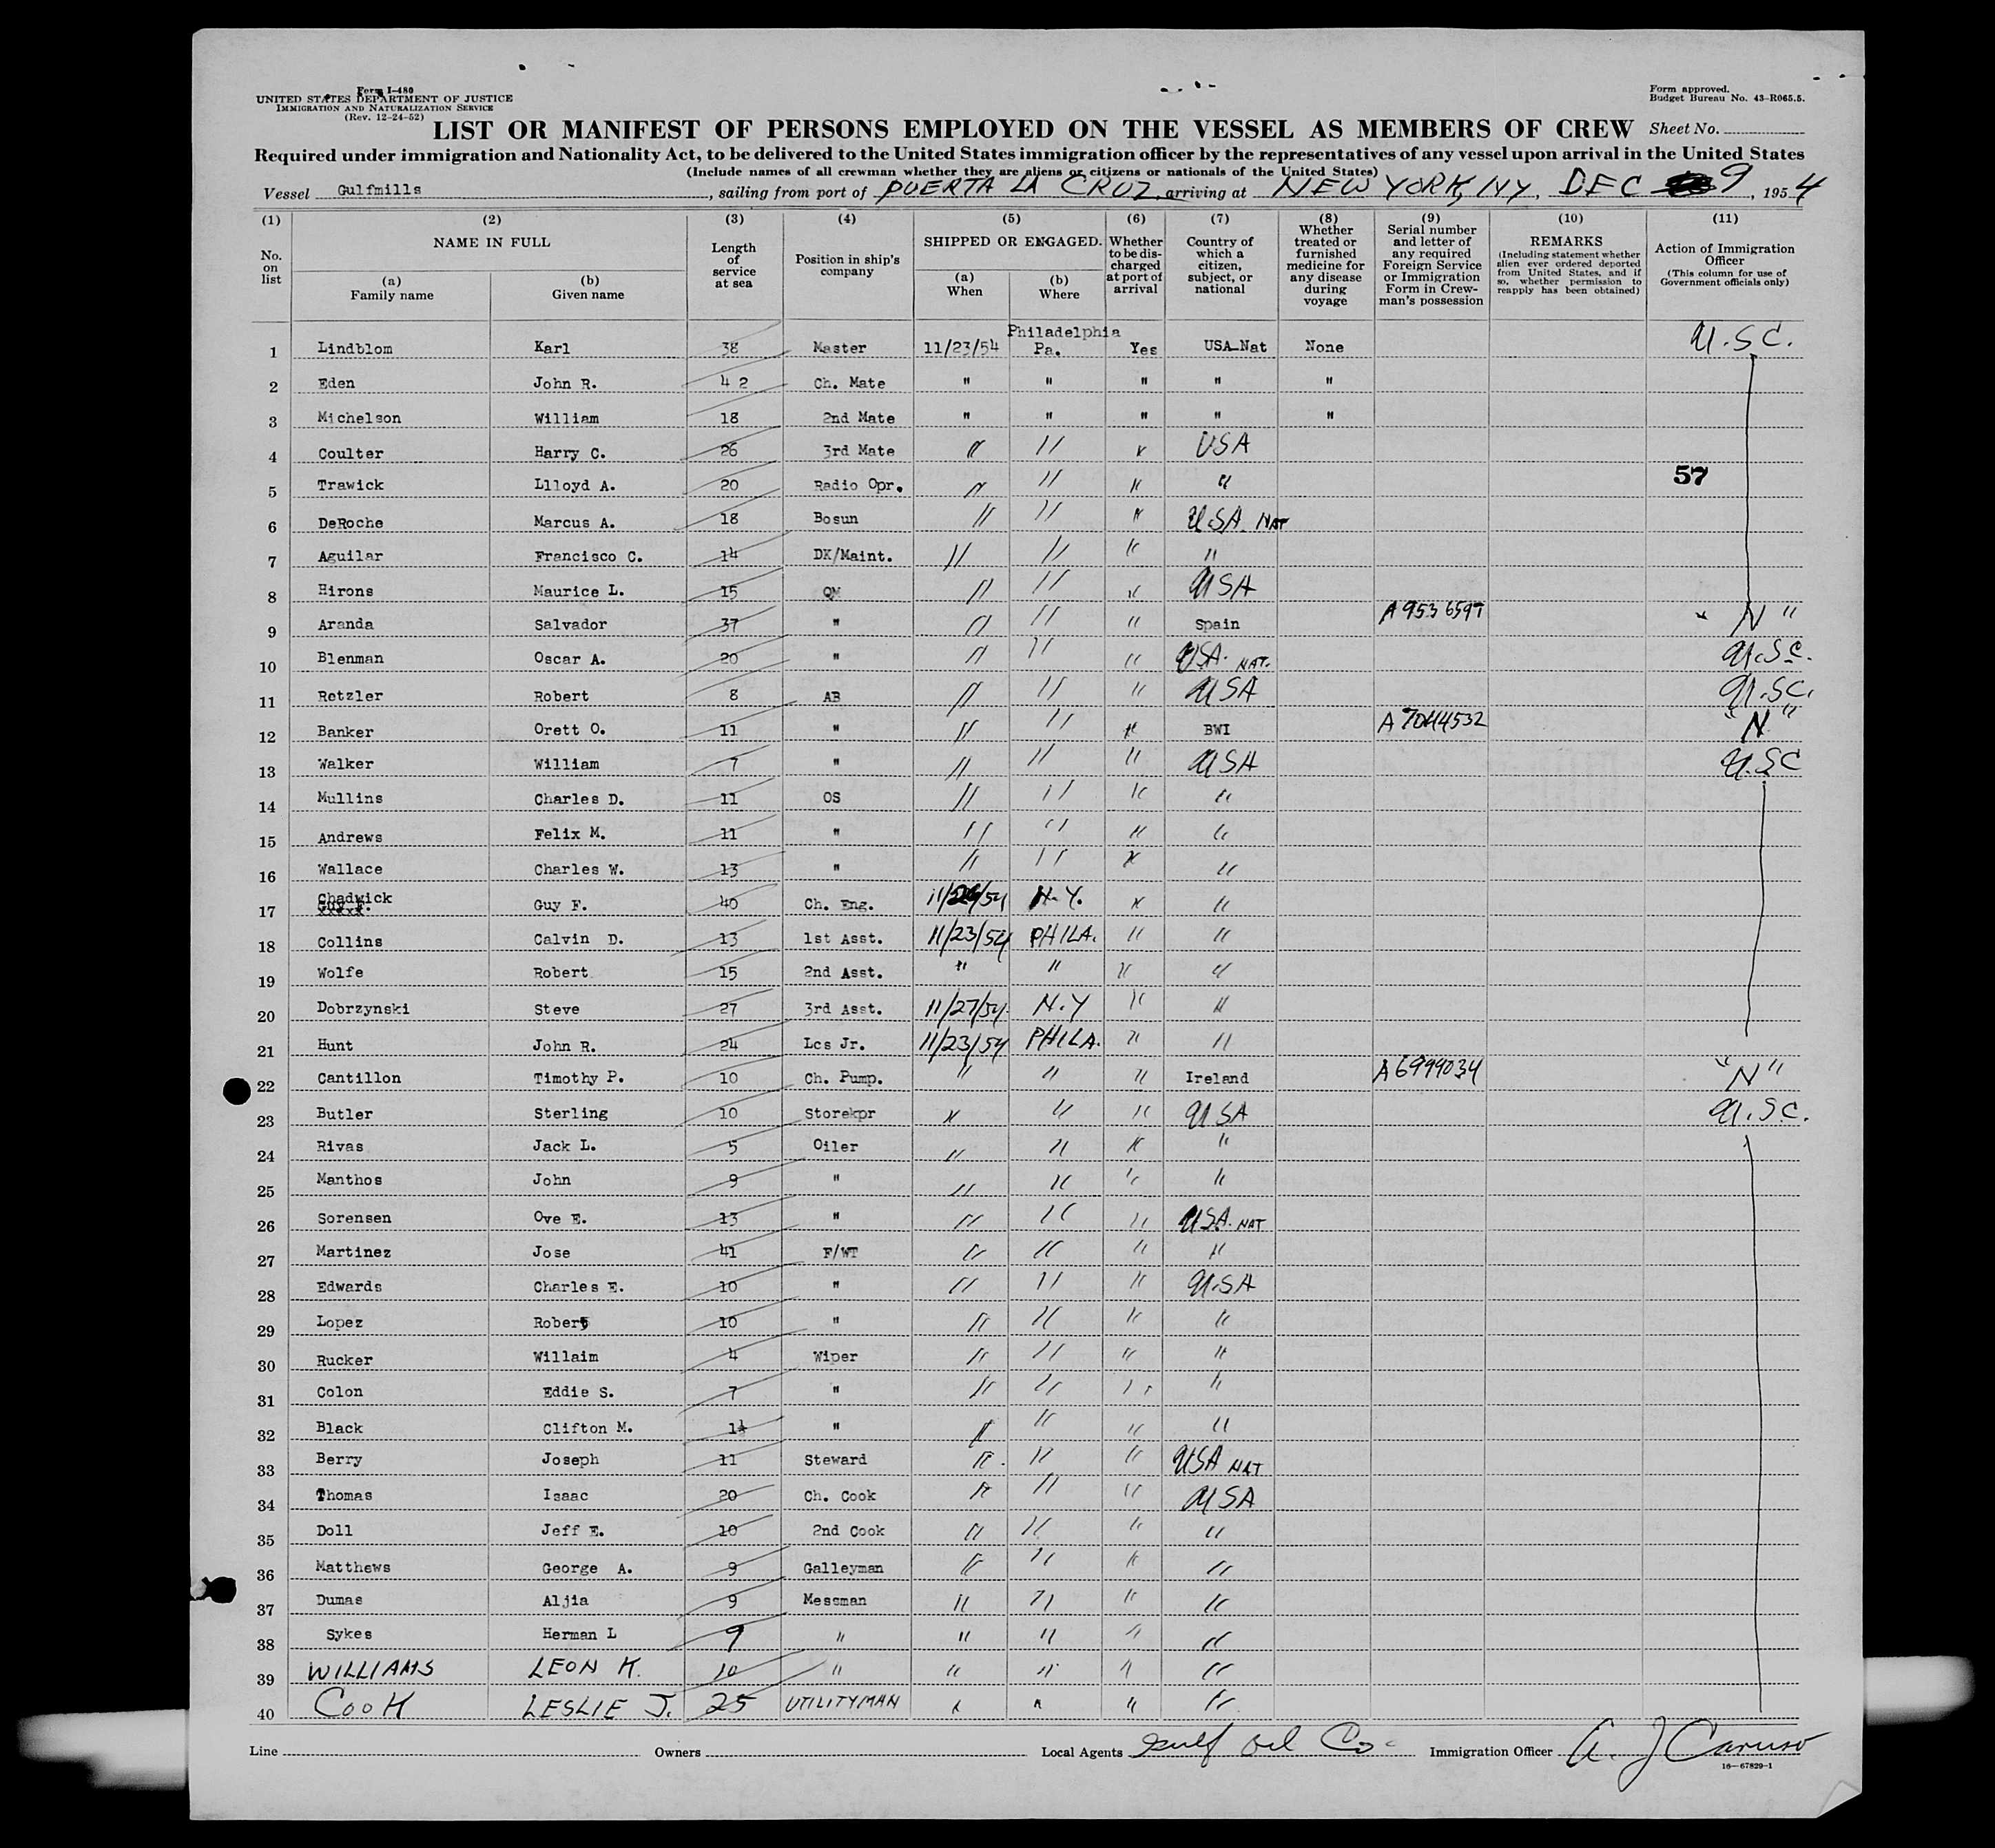 Form I-480
UNITED STATES DEPARTMENT OF JUSTICE
IMMIGRATION AND NATURALIZATION SERVICE
(Rev. 12-24-52)
Form approved.
Budget Bureau No. 43-R065.5.
LIST OR MANIFEST OF PERSONS EMPLOYED ON THE VESSEL AS MEMBERS OF CREW Sheet No.
Required under immigration and Nationality Act, to be delivered to the United States immigration officer by the representatives of any vessel upon arrival in the United States
(Include names of all crewman whether they are aliens or citizens or nationals of the United States)
Vessel Gulfmills, sailing from port of PUERTA LA CRUZ, arriving at NEW YORK, NY, DEC 9, 1954
(1) (2) (3) (4) (5) (6) (7) (8) (9) (10) (11)
No. on list
NAME IN FULL
(a) Family name
(b) Given name
Length of service at sea
Position in ship's company
SHIPPED OR ENGAGED.
(a) When
(b) Where
Whether to be discharged at port of arrival
Country of which a citizen, subject, or national
Whether treated or furnished medicine for any disease during voyage
Serial number and letter of any required Foreign Service or Immigration Form in Crewman's possession
REMARKS
(Including statement whether alien ever ordered deported from United States, and if so, whether permission to reapply has been obtained)
Action of Immigration Officer
(This column for use of Government officials only)
1 Lindblom Karl 38 Master 11/23/54 Philadelphia Pa. Yes USA-Nat None U.S.C.
2 Eden John R. 42 Ch. Mate " " " " "
3 Michelson William 18 2nd Mate " " " " "
4 Coulter Harry C. 26 3rd Mate " " " USA
5 Trawick Llloyd A. 20 Radio Opr. " " " " 57
6 DeRoche Marcus A. 18 Bosun " " " USA NAT
7 Aguilar Francisco C. 14 DK/Maint. " " " "
8 Hirons Maurice L. 15 QM " " " USA
9 Aranda Salvador 37 " " " " Spain A 953 6597 " N "
10 Blenman Oscar A. 20 " " " " USA. NAT. U.S.C.
11 Retzler Robert 8 AB " " " USA U.S.C.
12 Banker Orett O. 11 " " " " BWI A 7044532 "N"
13 Walker William 7 " " " " USA U.S.C
14 Mullins Charles D. 11 OS " " " "
15 Andrews Felix M. 11 " " " " "
16 Wallace Charles W. 13 " " " " "
17 Chadwick Guy F. Guy F. 40 Ch. Eng. N.Y. " "
18 Collins Calvin D. 13 1st Asst. 11/23/54 PHILA. " "
19 Wolfe Robert 15 2nd Asst. " " " "
20 Dobrzynski Steve 27 3rd Asst. 11/27/54 N.Y " "
21 Hunt John R. 24 Lcs Jr. 11/23/54 PHILA. " "
22 Cantillon Timothy P. 10 Ch. Pump. " " " Ireland A6999034 "N"
23 Butler Sterling 10 Storekpr " " " USA U.S.C.
24 Rivas Jack L. 5 Oiler " " " "
25 Manthos John 9 " " " " "
26 Sorensen Ove E. 13 " " " " USA. NAT
27 Martinez Jose 41 F/WT " " " "
28 Edwards Charles E. 10 " " " " U.SA
29 Lopez Robert 10 " " " " "
30 Rucker Willaim 4 Wiper " " " "
31 Colon Eddie S. 7 " " " " "
32 Black Clifton M. " " " " "
33 Berry Joseph 11 Steward " " " USA NAT
34 Thomas Isaac 20 Ch. Cook " " " USA
35 Doll Jeff E. 10 2nd Cook " " " "
36 Matthews George A. 9 Galleyman " " " "
37 Dumas Aljia 9 Messman " " " "
38 Sykes Herman L 9 " " " " "
39 WILLIAMS LEON K. 10 " " " " "
40 COOK LESLIE J. 25 UTILITYMAN " " " "
Line Owners Local Agents Gulf Oil Co. Immigration Officer A. J Caruso
16—67829-1